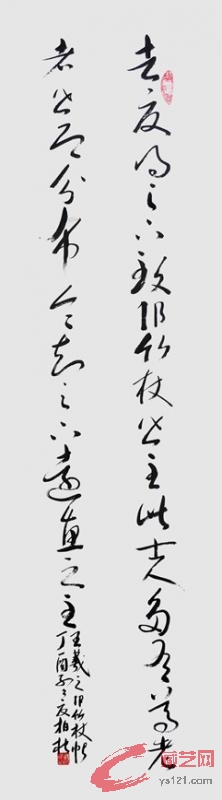 去夏得足下致邛竹杖皆至此士人多有尊老
者皆即分布令知足下远惠之至
王羲之邛竹杖帖
丁酉孟夏柏杜
艺网
ys121.com